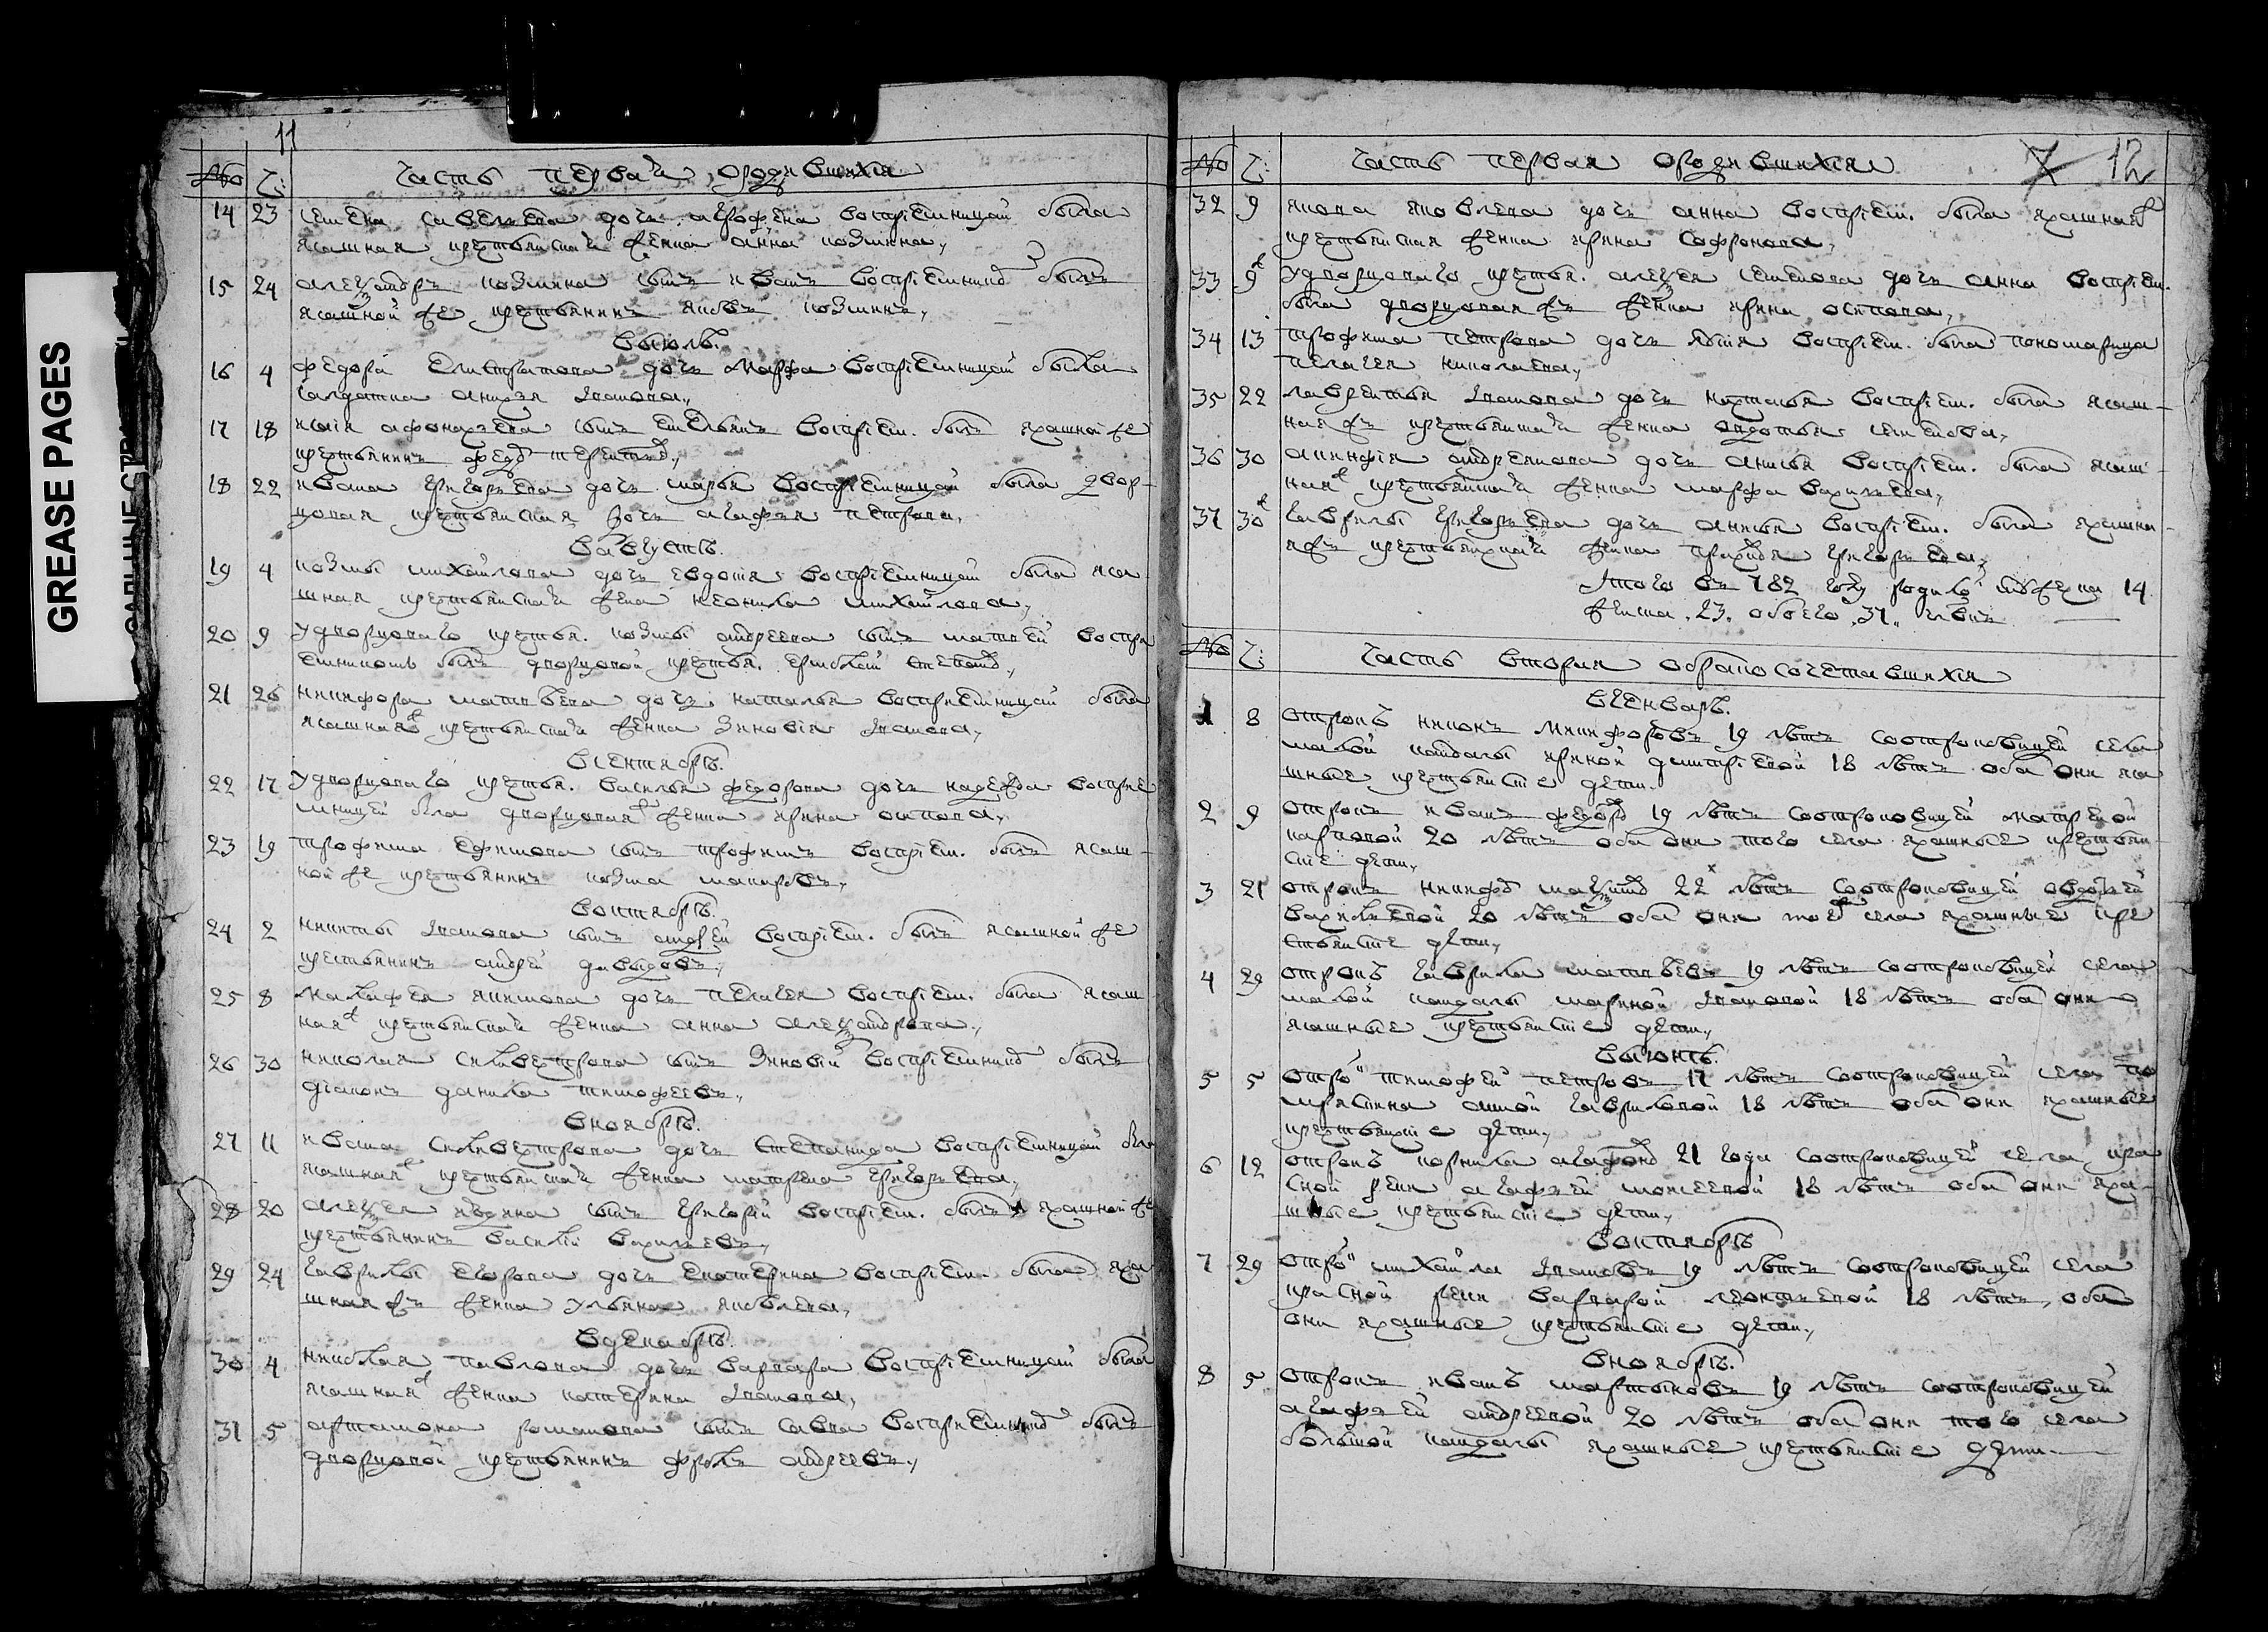 GREASE PAGES
11
№ Ч: Часть перваѧ ородившихся
14 23 семена савельева дочь агрофена восприемницей была
ясашная крестьянская женка анна козмина,
15 24 александръ козмина сынъ иванъ восприемник былъ
ясашной же крестьянинъ яковъ козминъ,
Виюль.
16 4 федора елистратова дочь марфа восприемницей была
салдатка анисья иванова,
17 18 исаия афонасьева сынъ емельянъ восприем. былъ ясашной же
крестьянинъ федр терентев,
18 22 ивана григорьева дочь марья восприемницей была двор-
цовая крестьянская дочь агафья петрова,
Вавгустъ.
19 4 козмы михайлова дочь евдокия восприемницей была яса-
шная крестьянская жена неонила михайлова,
20 9 у дворцоваго крестья. козмы андреева сынъ матвей воспри
емником былъ дворцовой крестья. ермолай степанов,
21 26 никифора матвеева дочь наталья восприемницей была
ясашная ж крестьянская женка зиновия иванова,
Всентябрь.
22 17 у дворцоваго крестья. василья федорова дочь надежда восприе
мницей была дворцовая ж женка ирина осипова,
23 19 трофима ефимова сынъ трофимъ восприем. былъ ясаш-
ной же крестьянинъ козма макаровъ,
Воктябрь.
24 2 никиты иванова сынъ андрей восприем. былъ ясашной же
крестьянинъ андрей давыдовъ,
25 8 малафея якимова дочь пелагея восприем. была ясаш-
ная ж крестьянская женка анна александрова,
26 30 николая силивестрова сынъ зиновий восприемник былъ
диаконъ данила тимофеевъ,
Вноябрь.
27 11 ивана силивестрова дочь степанида восприемницей была
ясашная ж крестьянская женка матрена григорьева,
28 20 алексея сынъ григорий восприем. былъ ясашной же
крестьянинъ василий васильевъ,
29 24 гаврилы егорова дочь екатерина восприем. была яса
шная жъ женка ульяна яковлева,
Вдекабрь.
30 4 николая павлова дочь варвара восприемницей была
ясашная ж женка катерина иванова,
31 5 артамона романова сынъ савва восприемник былъ
дворцовой крестьянинъ фролъ андреевъ,
7 12
№ Ч: Часть первая ородившихся
32 9 якова яковлева дочь анна восприем. была ясашная ж
крестьянская женка ирина софронова,
33 9 у дворцоваго крестья. алексея семенова дочь анна восприем.
была дворцовая жъ женка ирина осипова,
34 13 трофима петрова дочь восприем. была пономарица
пелагея николаева,
35 22 лаврентья иванова дочь насталья восприем. была ясаш-
ная жъ крестьянская женка авдотья семенова,
36 30 акинфия андреянова дочь анисья восприем. была ясаш-
ная ж крестьянская женка марфа васильева,
37 30 гаврилы григорьева дочь анисья восприем. была ясашна-
я жъ крестьянская женка григорьева,
Итого въ 782 году родилось мужеска 14
женска 23. обоего 37. человекъ
№ Ч: Часть вторая обракосочетавшихся
Вгенварь.
1 8 отрокъ никонъ никифоровъ 19 летъ соотроковицей села
малой кандалы ириной дмитриевой 18 летъ оба они яса
шные крестьянские дети.
2 9 отрокъ иванъ федоров 19 летъ соотроковицей матреной
карповой 20 летъ оба они того села ясашные крестьян-
ские дети,
3 21 отрокъ никифор максимов 22 летъ соотроковицей овдотьей
васильевой 20 летъ оба они того ж села ясашные кре
стьянские дети,
4 29 отрокъ гаврила матвеевъ 19 летъ соотроковицей села
малой кандалы мариной ивановой 18 летъ оба они
ясашные крестьянские дети,
Виюнь.
5 5 отрокъ тимофей петровъ 17 летъ соотроковицей села по
мряскина анной гавриловой 18 летъ оба они ясашные
крестьянские дети,
6 12 отрокъ корнила агафонов 21 года соотроковицей села кра
сной реки агафьей моисеевой 18 летъ оба они яса-
шные крестьянские дети,
Воктябрь
7 29 отрокъ михайла ивановъ 19 летъ соотроковицей села
красной реки варварой леонтьевой 18 летъ, оба
они ясашные крестьянские дети,
Вноябрь.
8 5 отрокъ иванъ мартыновъ 19 летъ соотроковицей
агафьей андреевой 20 летъ оба они того села
большой кандалы ясашные крестьянские дети.